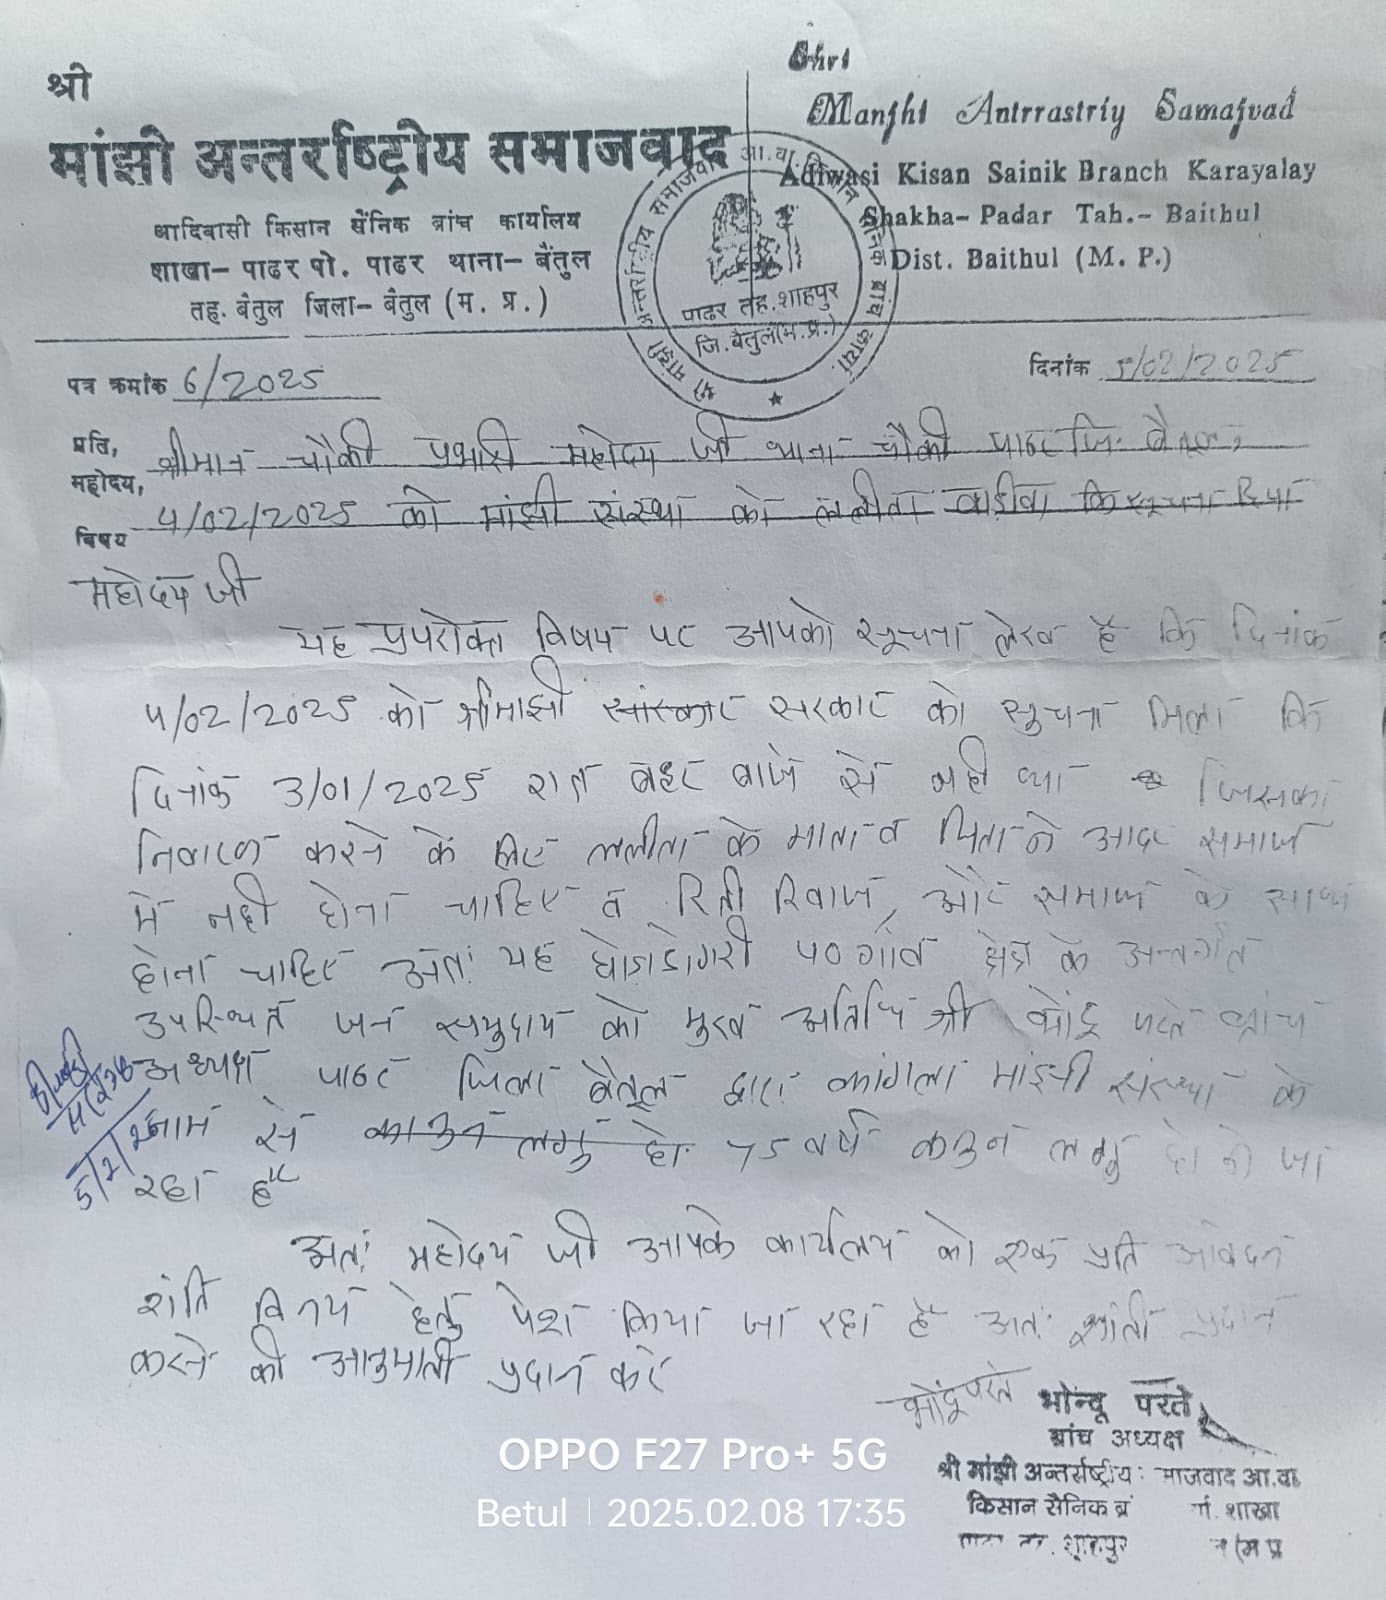 श्री
मांझी अन्तर्राष्ट्रीय समाजवाद
आदिवासी किसान सैनिक ब्रांच कार्यालय
शाखा- पाढर पो. पाढर थाना- बैतुल
तह. बैतुल जिला- बैतुल (म. प्र.)
Shri
Manjhi Antrrastriy Samajvad
Adiwasi Kisan Sainik Branch Karayalay
Shakha- Padar Tah.- Baithul
Dist. Baithul (M. P.)
श्री मांझी अन्तर्राष्ट्रीय समाजवाद आ.वा. किसान सैनिक ब्रांच कार्या.
पाढर तह. शाहपुर
जि. बैतुल (म.प्र.)
पत्र क्रमांक 6/2025
दिनांक 5/02/2025
प्रति, श्रीमान चौकी प्रभारी महोदय जी थाना चौकी पाढर जि. बैतूल,
महोदय,
विषय 4/02/2025 को मांझी संस्था को ललीता वाडीवा कि सूचना दिया
महोदय जी
यह उपरोक्त विषय पर आपको सूचना लेख है कि दिनांक
4/02/2025 को श्रीमांझी सरकार को सूचना मिला कि
दिनांक 3/01/2025 रात बाजे से नही था जिसका
करने के लिए ललीता के माता व पिता ने आदर समाज
में नही होना चाहिए व रिती रिवाज, और समाज के साथ
होना चाहिए अतः यह घोडाडोंगरी 40 गांव क्षेत्र के अन्तर्गत
उपस्थित जन समुदाय को मुख्य अतिथि श्री भोंदू परते ब्रांच
अध्यक्ष पाढर जिला बैतूल द्वारा कांगला मांझी संस्था के
नाम से कानुन लागु हो 75 वर्ष कानुन लागु होने जा
रहा है
5/2/25
अतः महोदय जी आपके कार्यालय को एक प्रति आवेदन
शांति विनय हेतु पेश किया जा रहा है अतः शांती प्रदान
करने की अनुमाती प्रदान करे
भोंदू परते
भोन्दू परते
ब्रांच अध्यक्ष
श्री मांझी अन्तर्राष्ट्रीय माजवाद आ.वा
किसान सैनिक ब्रं शाखा
शाहपुर (म प्र
OPPO F27 Pro+ 5G
Betul | 2025.02.08 17:35